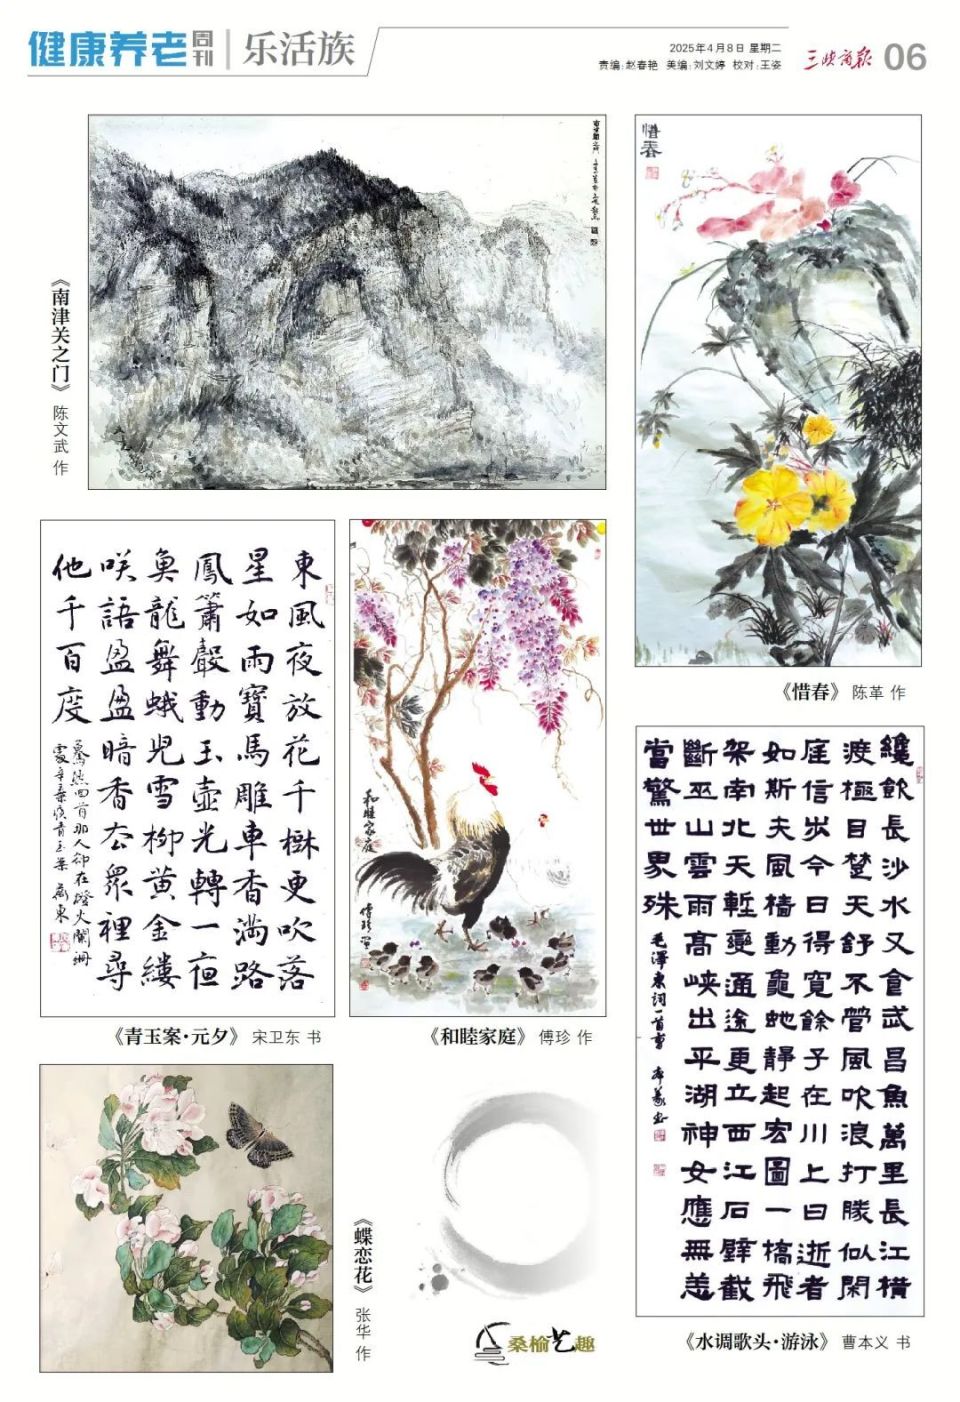 健康养老周刊
乐活族
2025年4月8日 星期二
责编:赵春艳 美编:刘文婷 校对:王姿
三峡商报 06
《南津关之门》 陈文武 作
惜春
《惜春》 陈革 作
東風夜放花千樹更吹落
星如雨寶馬雕車香滿路
鳳簫聲動玉壺光轉一夜
魚龍舞蛾兒雪柳黃金縷
咲語盈盈暗香去眾裡尋
他千百度
驀然回首那人卻在燈火闌珊
《青玉案·元夕》 宋卫东 书
和睦家庭
傅珍
《和睦家庭》 傅珍 作
纔飲長沙水又食武昌魚萬里長江橫
渡極目楚天舒不管風吹浪打勝似閑
庭信步今日得寬餘子在川上曰逝者
如斯夫風檣動龜蛇靜起宏圖一橋飛
架南北天塹變通途更立西江石壁截
斷巫山雲雨高峽出平湖神女應無恙
當驚世界殊
毛澤東詞一首
《水调歌头·游泳》 曹本义 书
《蝶恋花》 张华 作
桑榆艺趣